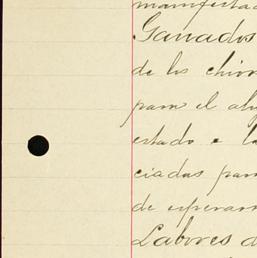 manifestad
Ganados
de los chivo
para el ab
estado a la
ciadas para
de esperar
Labores d